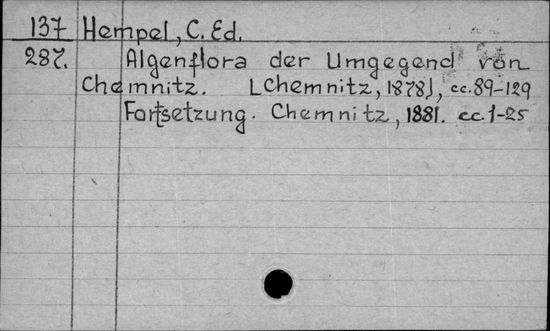 137 Hempel, C. Ed.
287. Algenflora der Umgegend von
Chemnitz. [Chemnitz, 1878], cc. 89-129
Fortsetzung. Chemnitz, 1881. cc. 1-25